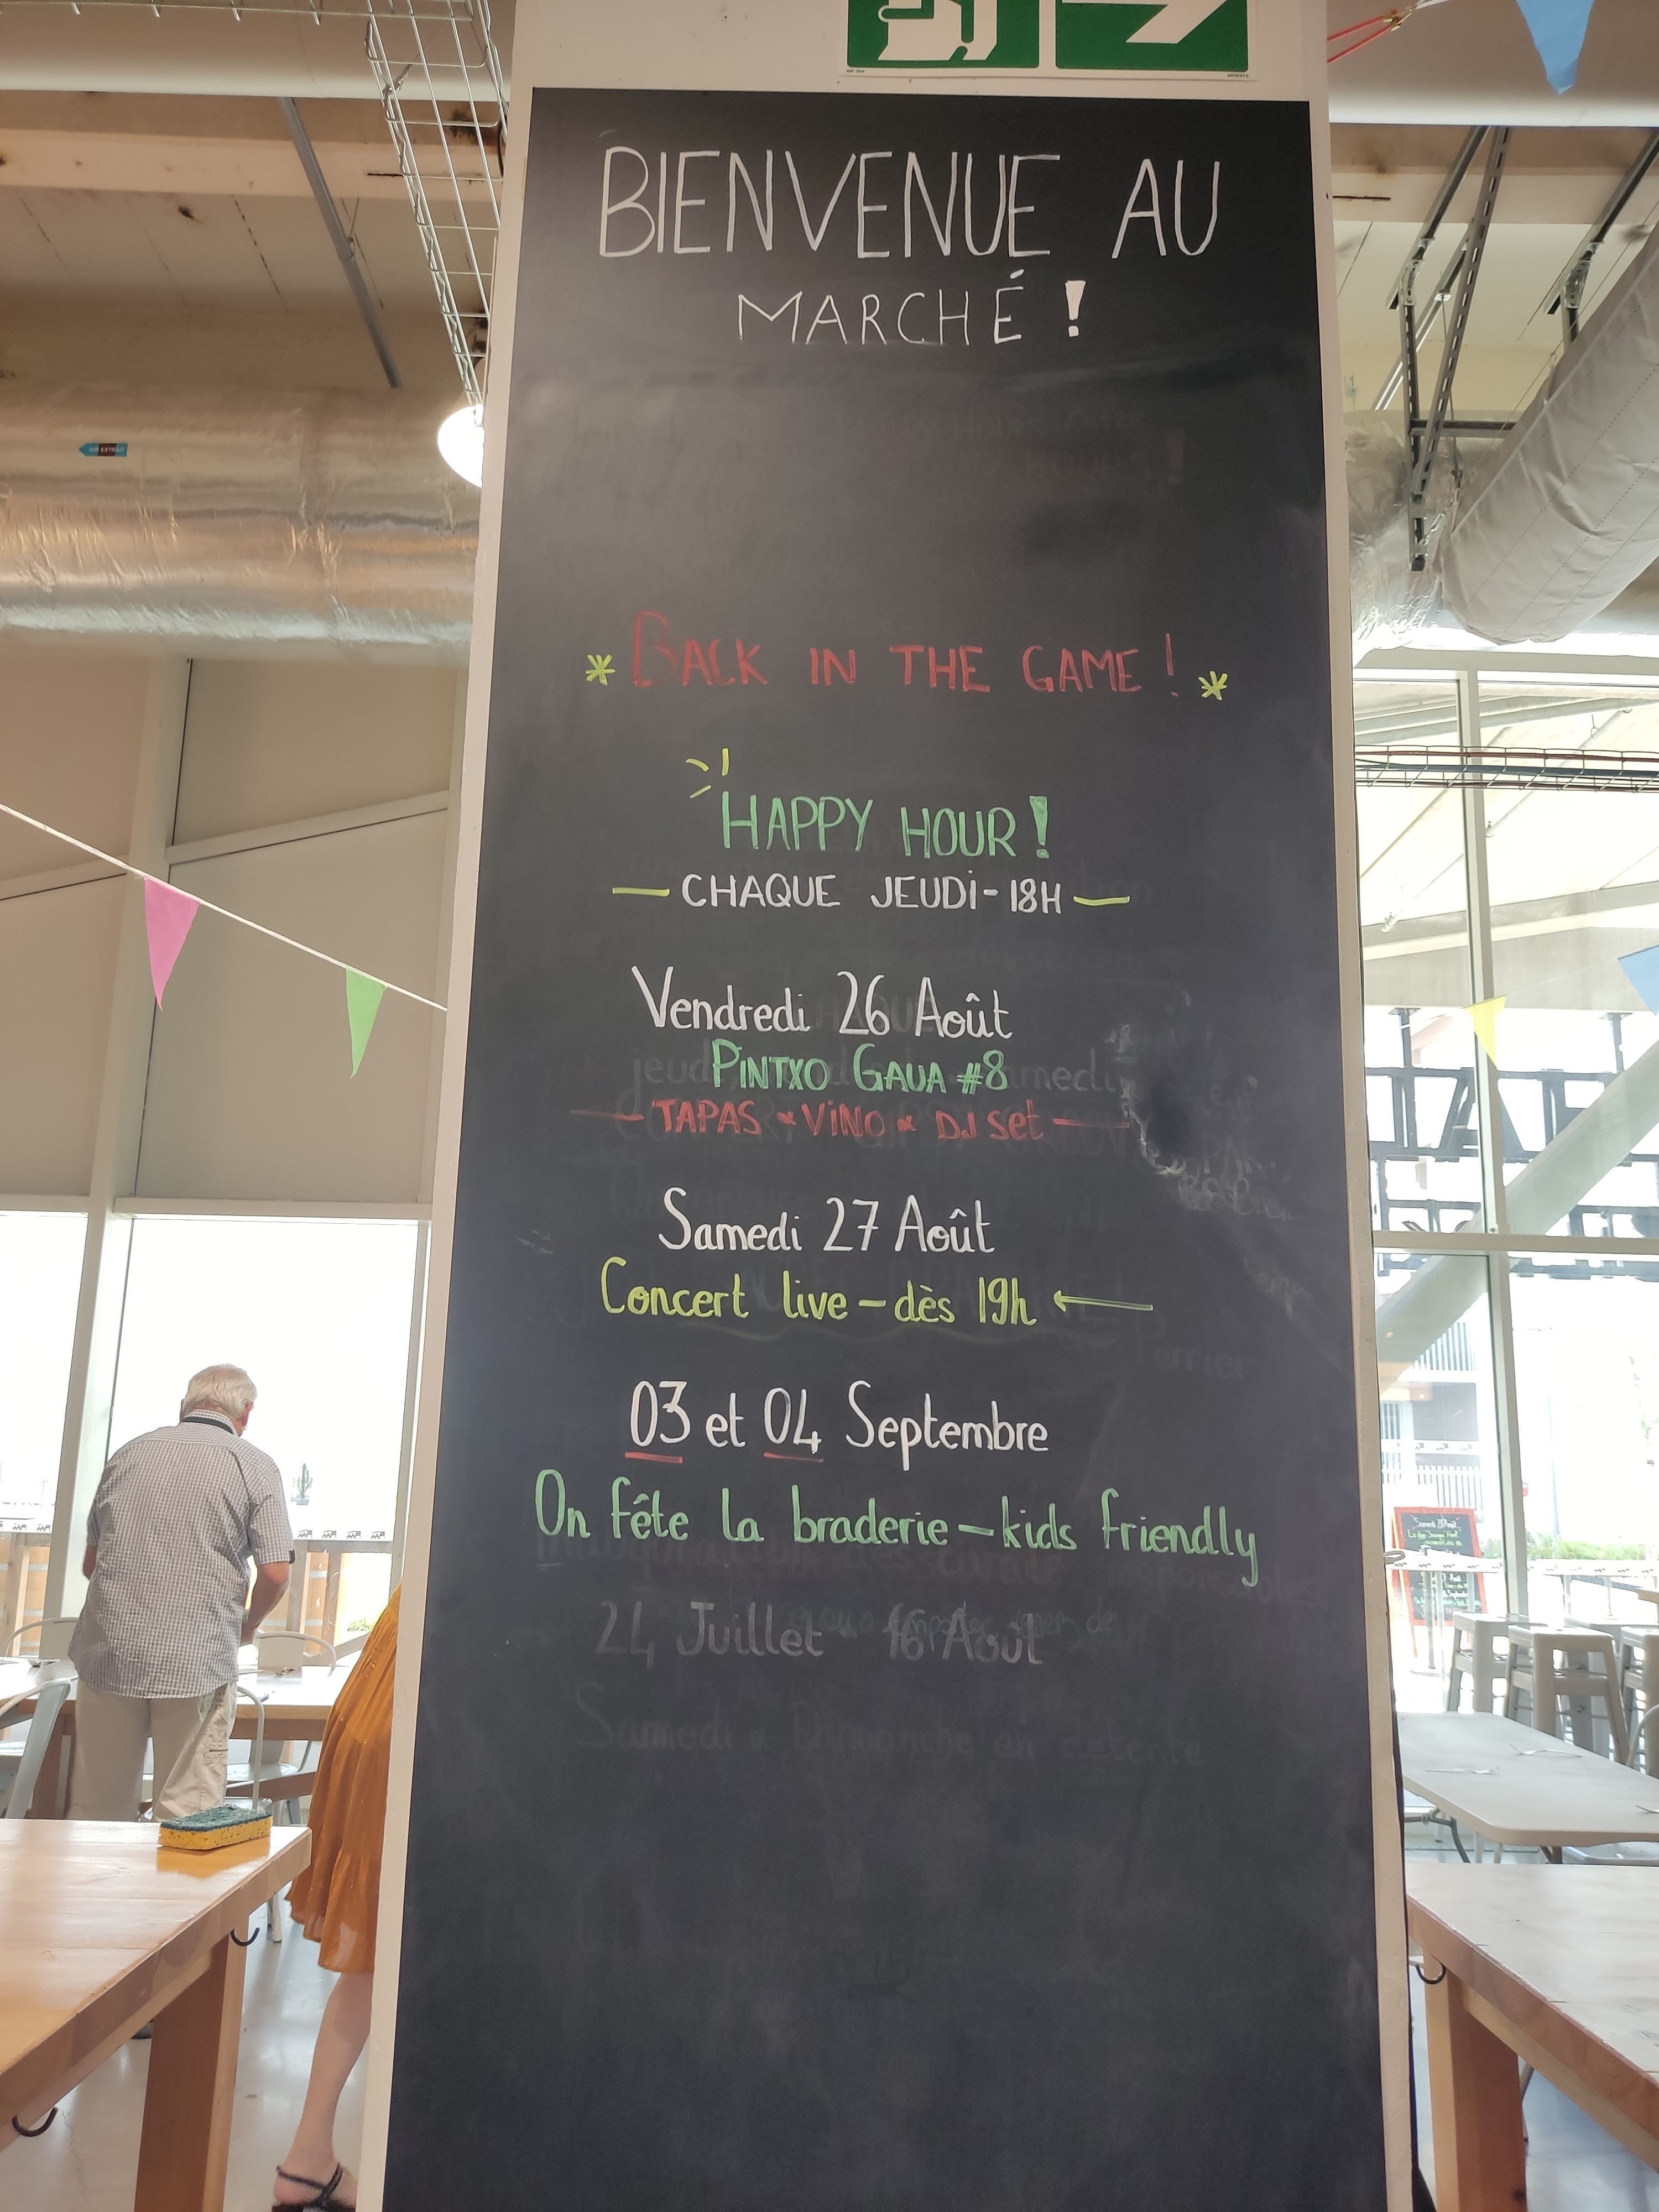 BIENVENUE AU
MARCHÉ !
HOURS !
* BACK IN THE GAME ! *
HAPPY HOUR !
— CHAQUE JEUDI - 18H —
Vendredi 26 Août
PINTXO GAUA #8
— TAPAS * VINO * DJ set —
Samedi 27 Août
Concert live — dès 19h ←
03 et 04 Septembre
On fête la braderie — kids friendly
24 Juillet 16 Août
Samedi & Dimanche en détente
AIR EXTRAIT